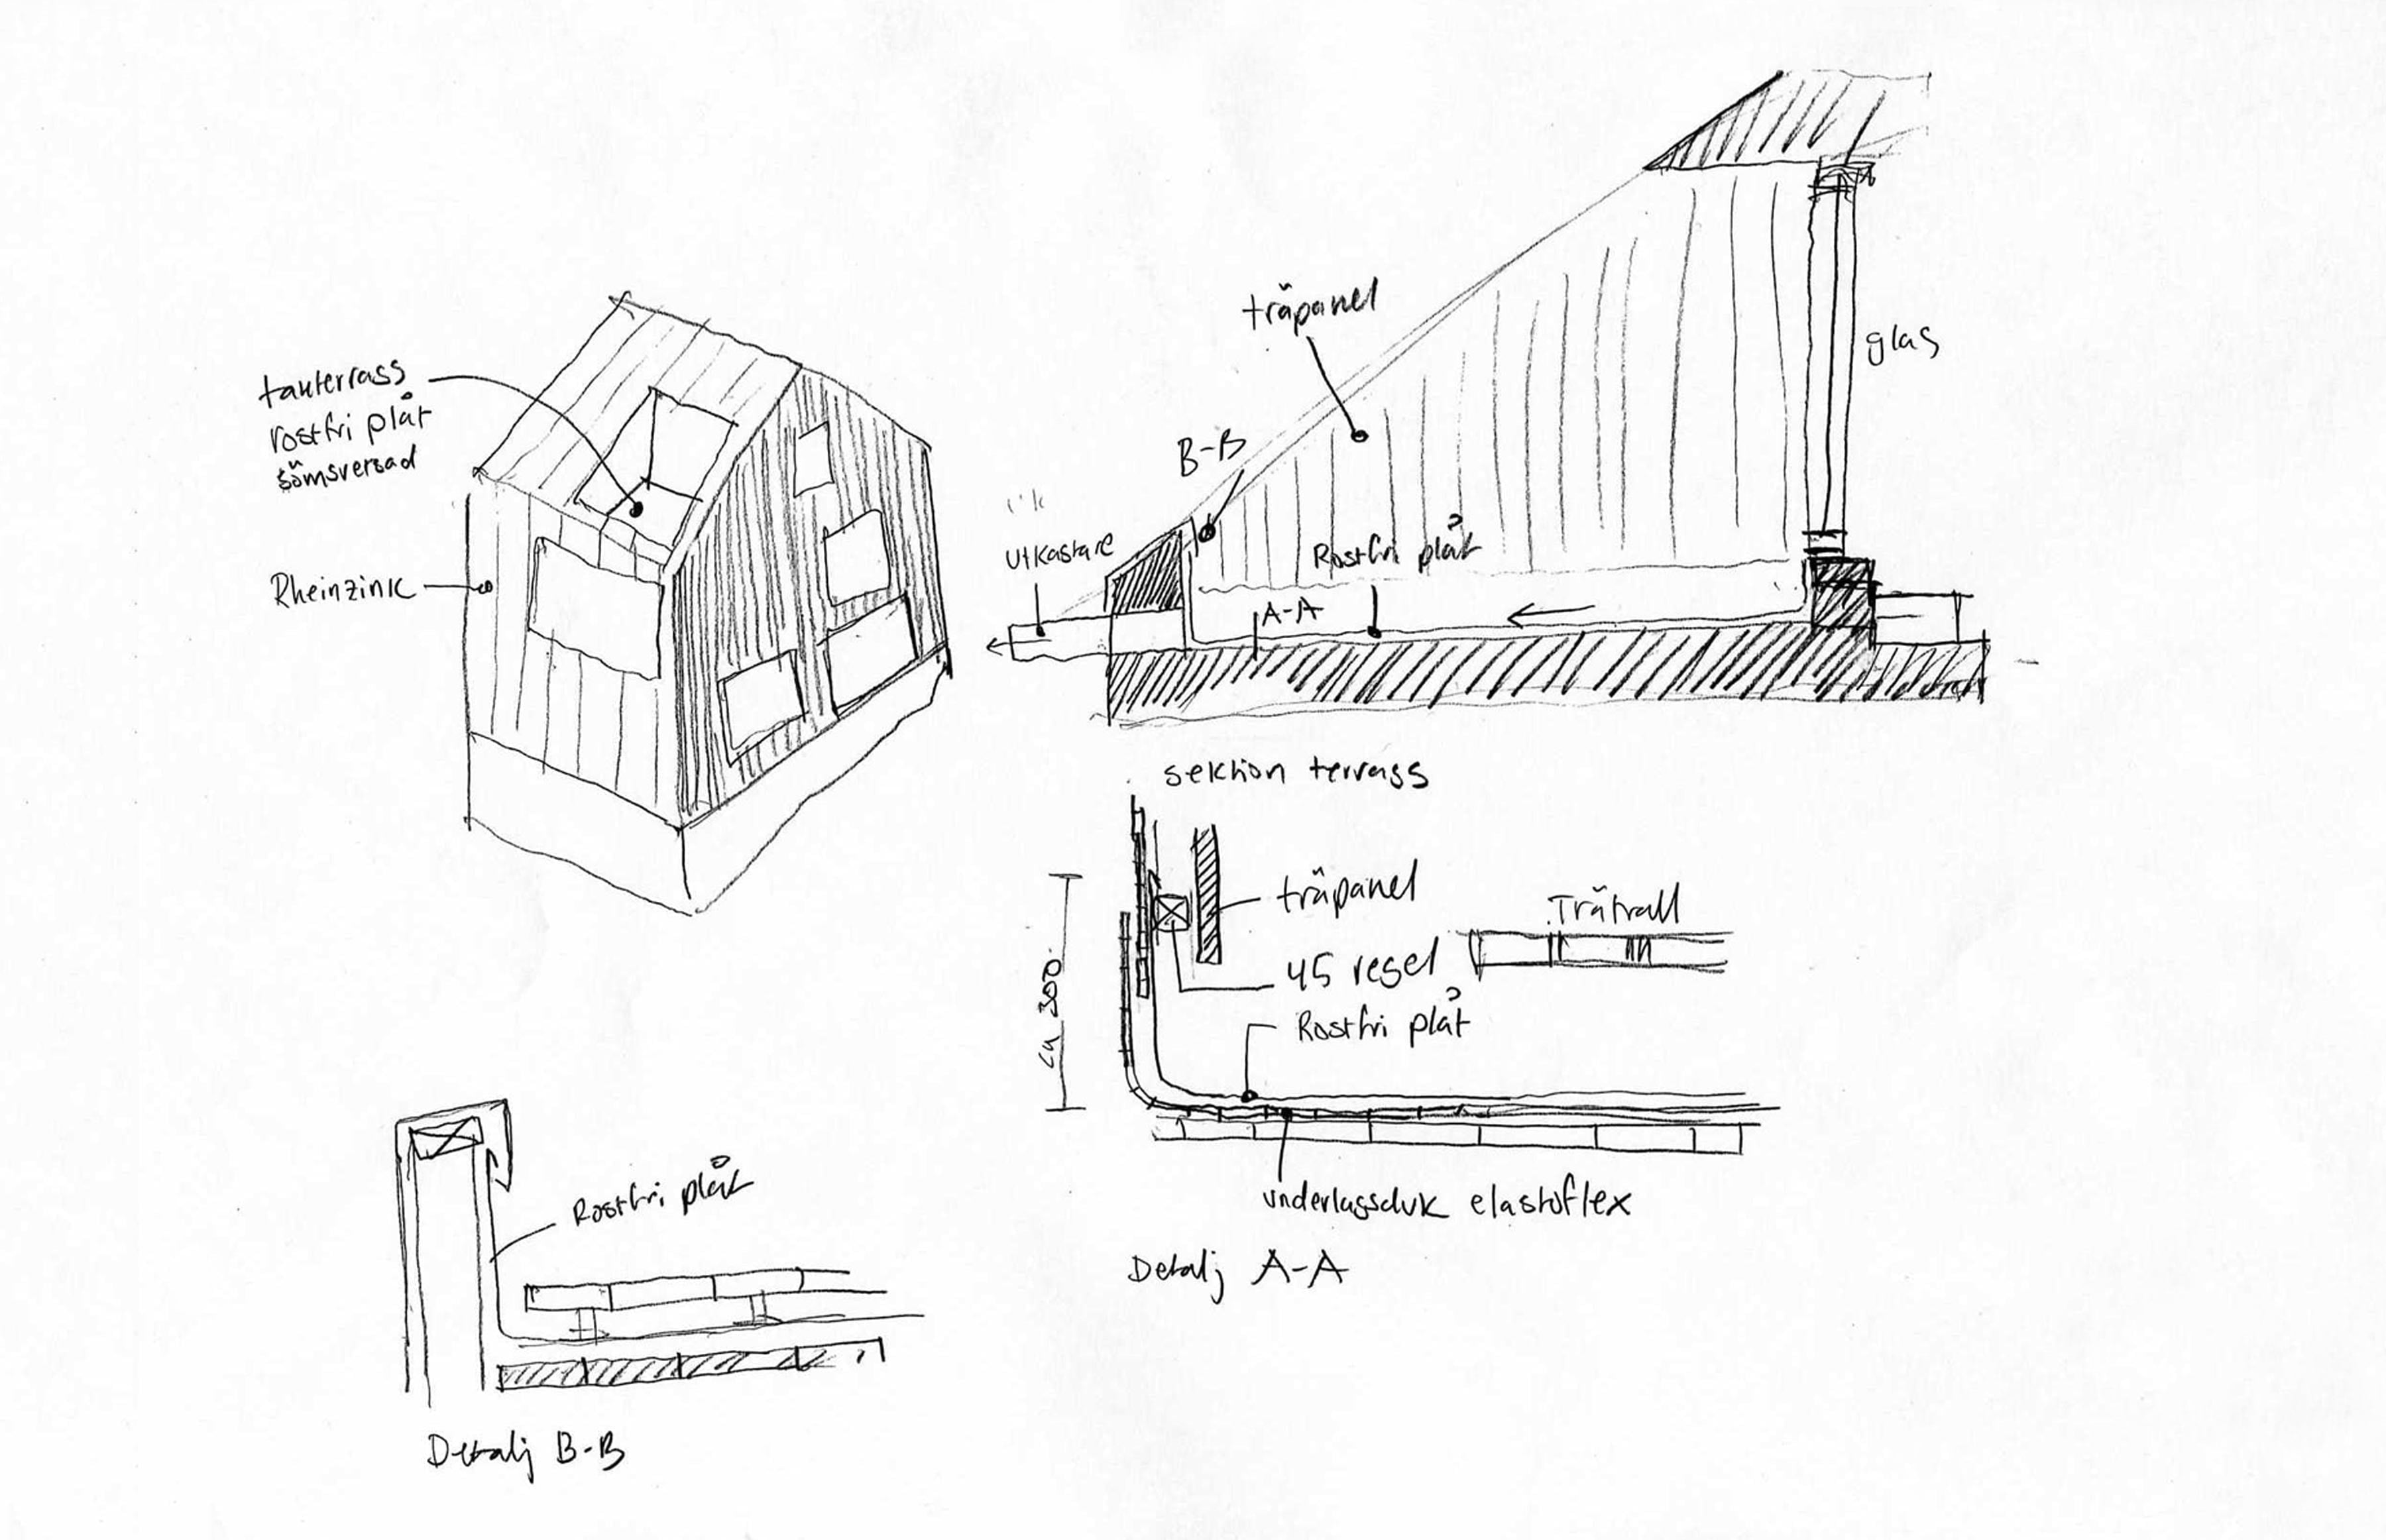 takterrass
rostfri plåt
sömsveisad
Rheinzink
träpanel
glas
B-B
utkastare
Rostfri plåt
A-A
sektion terrass
träpanel
Trätrall
45 regel
Rostfri plåt
ca 300
underlagsduk elastoflex
Detalj A-A
Rostfri plåt
Detalj B-B